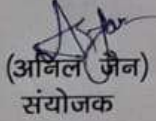 (अनिल जैन)
संयोजक